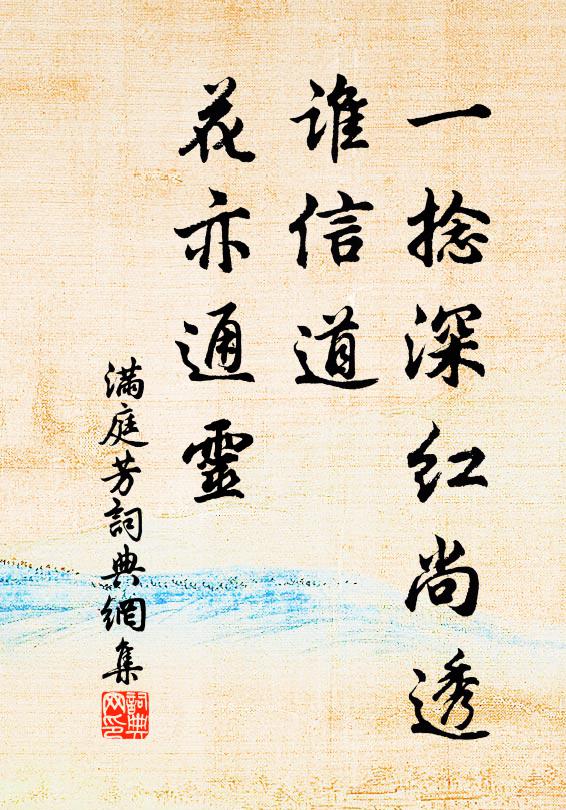 一捻深红尚透
谁信道
花亦通靈
滿庭芳詞典網集
詞典网印